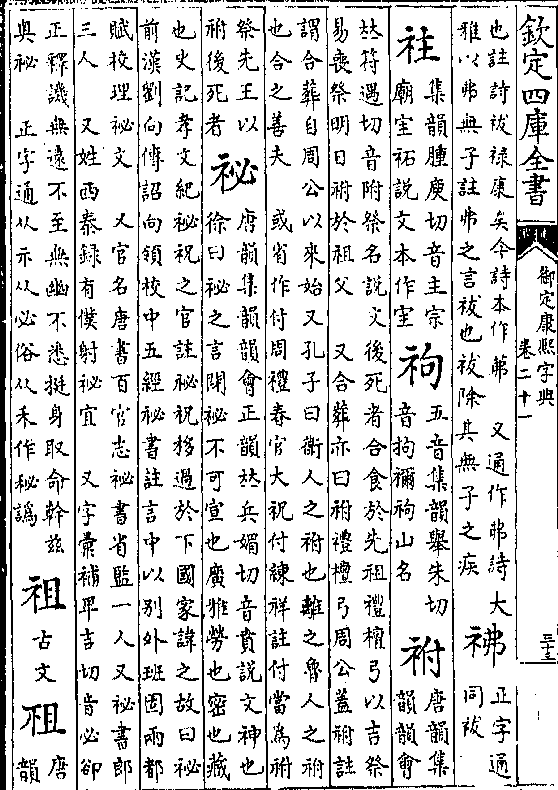 欽定四庫全書
御定康熙字典
卷二十一
三十三
也註詩祓祿康矣今詩本作茀 又通作弗詩大
雅以弗無子註弗之言祓也祓除其無子之疾
正字通
同祓
集韻腫庾切音主宗
廟宝祏說文本作宔
䄔
五音集韻舉朱切
音拘禰䄔山名
祔
唐韻集
韻韻會
𠀤符遇切音附祭名說文後死者合食於先祖禮檀弓以吉祭
易喪祭明日祔於祖父 又合葬亦曰祔禮檀弓周公蓋祔註
謂合葬自周公以來始又孔子曰衞人之祔也離之魯人之祔
也合之善夫 或省作付周禮春官大祝付練祥註付當爲祔
祭先王以
祔後死者
祕
唐韻集韻韻會正韻𠀤兵媚切音賁說文神也
徐曰祕之言閉祕不可宣也廣雅勞也密也藏
也史記孝文紀祕祝之官註祕祝移過於下國家諱之故曰祕
前漢劉向傳詔向領校中五經祕書註言中以别外班固兩都
賦校理祕文 又官名唐書百官志祕書省監一人又祕書郎
三人 又姓西秦錄有僕射祕宜 又字彙補畢吉切音必郤
正釋譏無遠不至無幽不悉挺身取命幹茲
奧祕 正字通从示从必俗从禾作秘譌
祖
古文
唐
韻